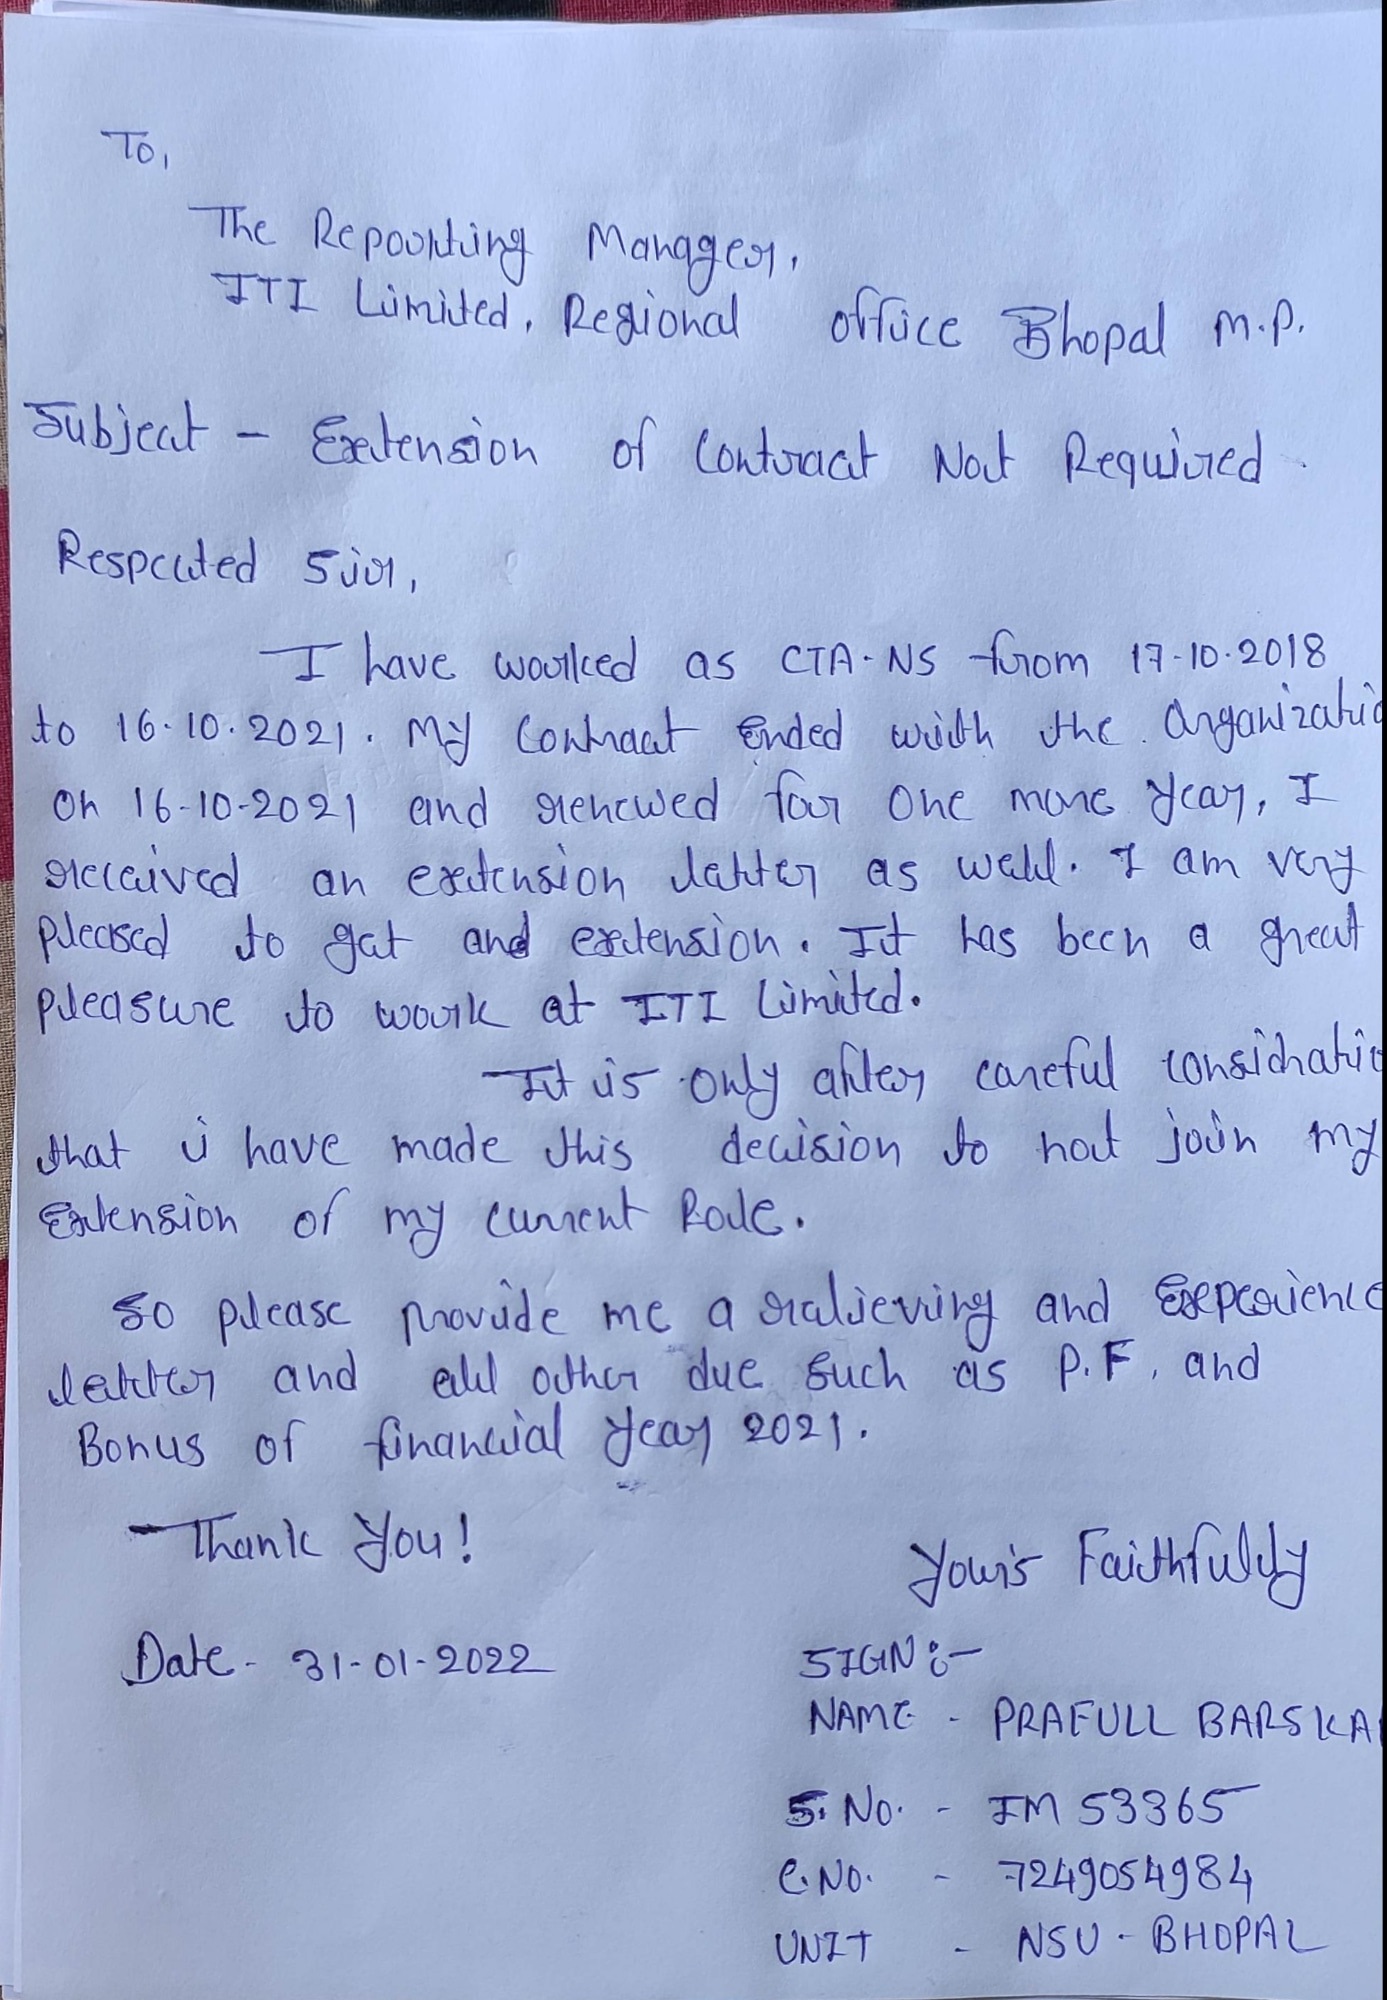 To,
The Reporting Manager,
ITI Limited, Regional office Bhopal M.P.
Subject - Extension of Contract Not Required.
Respected Sir,
I have worked as CTA-NS from 17-10-2018
to 16-10-2021. My Contract Ended with the Organizatio
on 16-10-2021 and renewed for one more year, I
received an extension letter as well. I am very
pleased to get and extension. It has been a great
pleasure to work at ITI Limited.
It is only after careful considratio
that i have made this decision to not join my
Extension of my current Role.
So please provide me a relieving and Experience
letter and all other due such as P.F, and
Bonus of financial year 2021.
Thank You!
Yours Faithfully
Date - 31-01-2022
SIGN :-
NAME - PRAFULL BARSKA
S. No. - IM 53365
C. No. - 7249054984
UNIT - NSU - BHOPAL